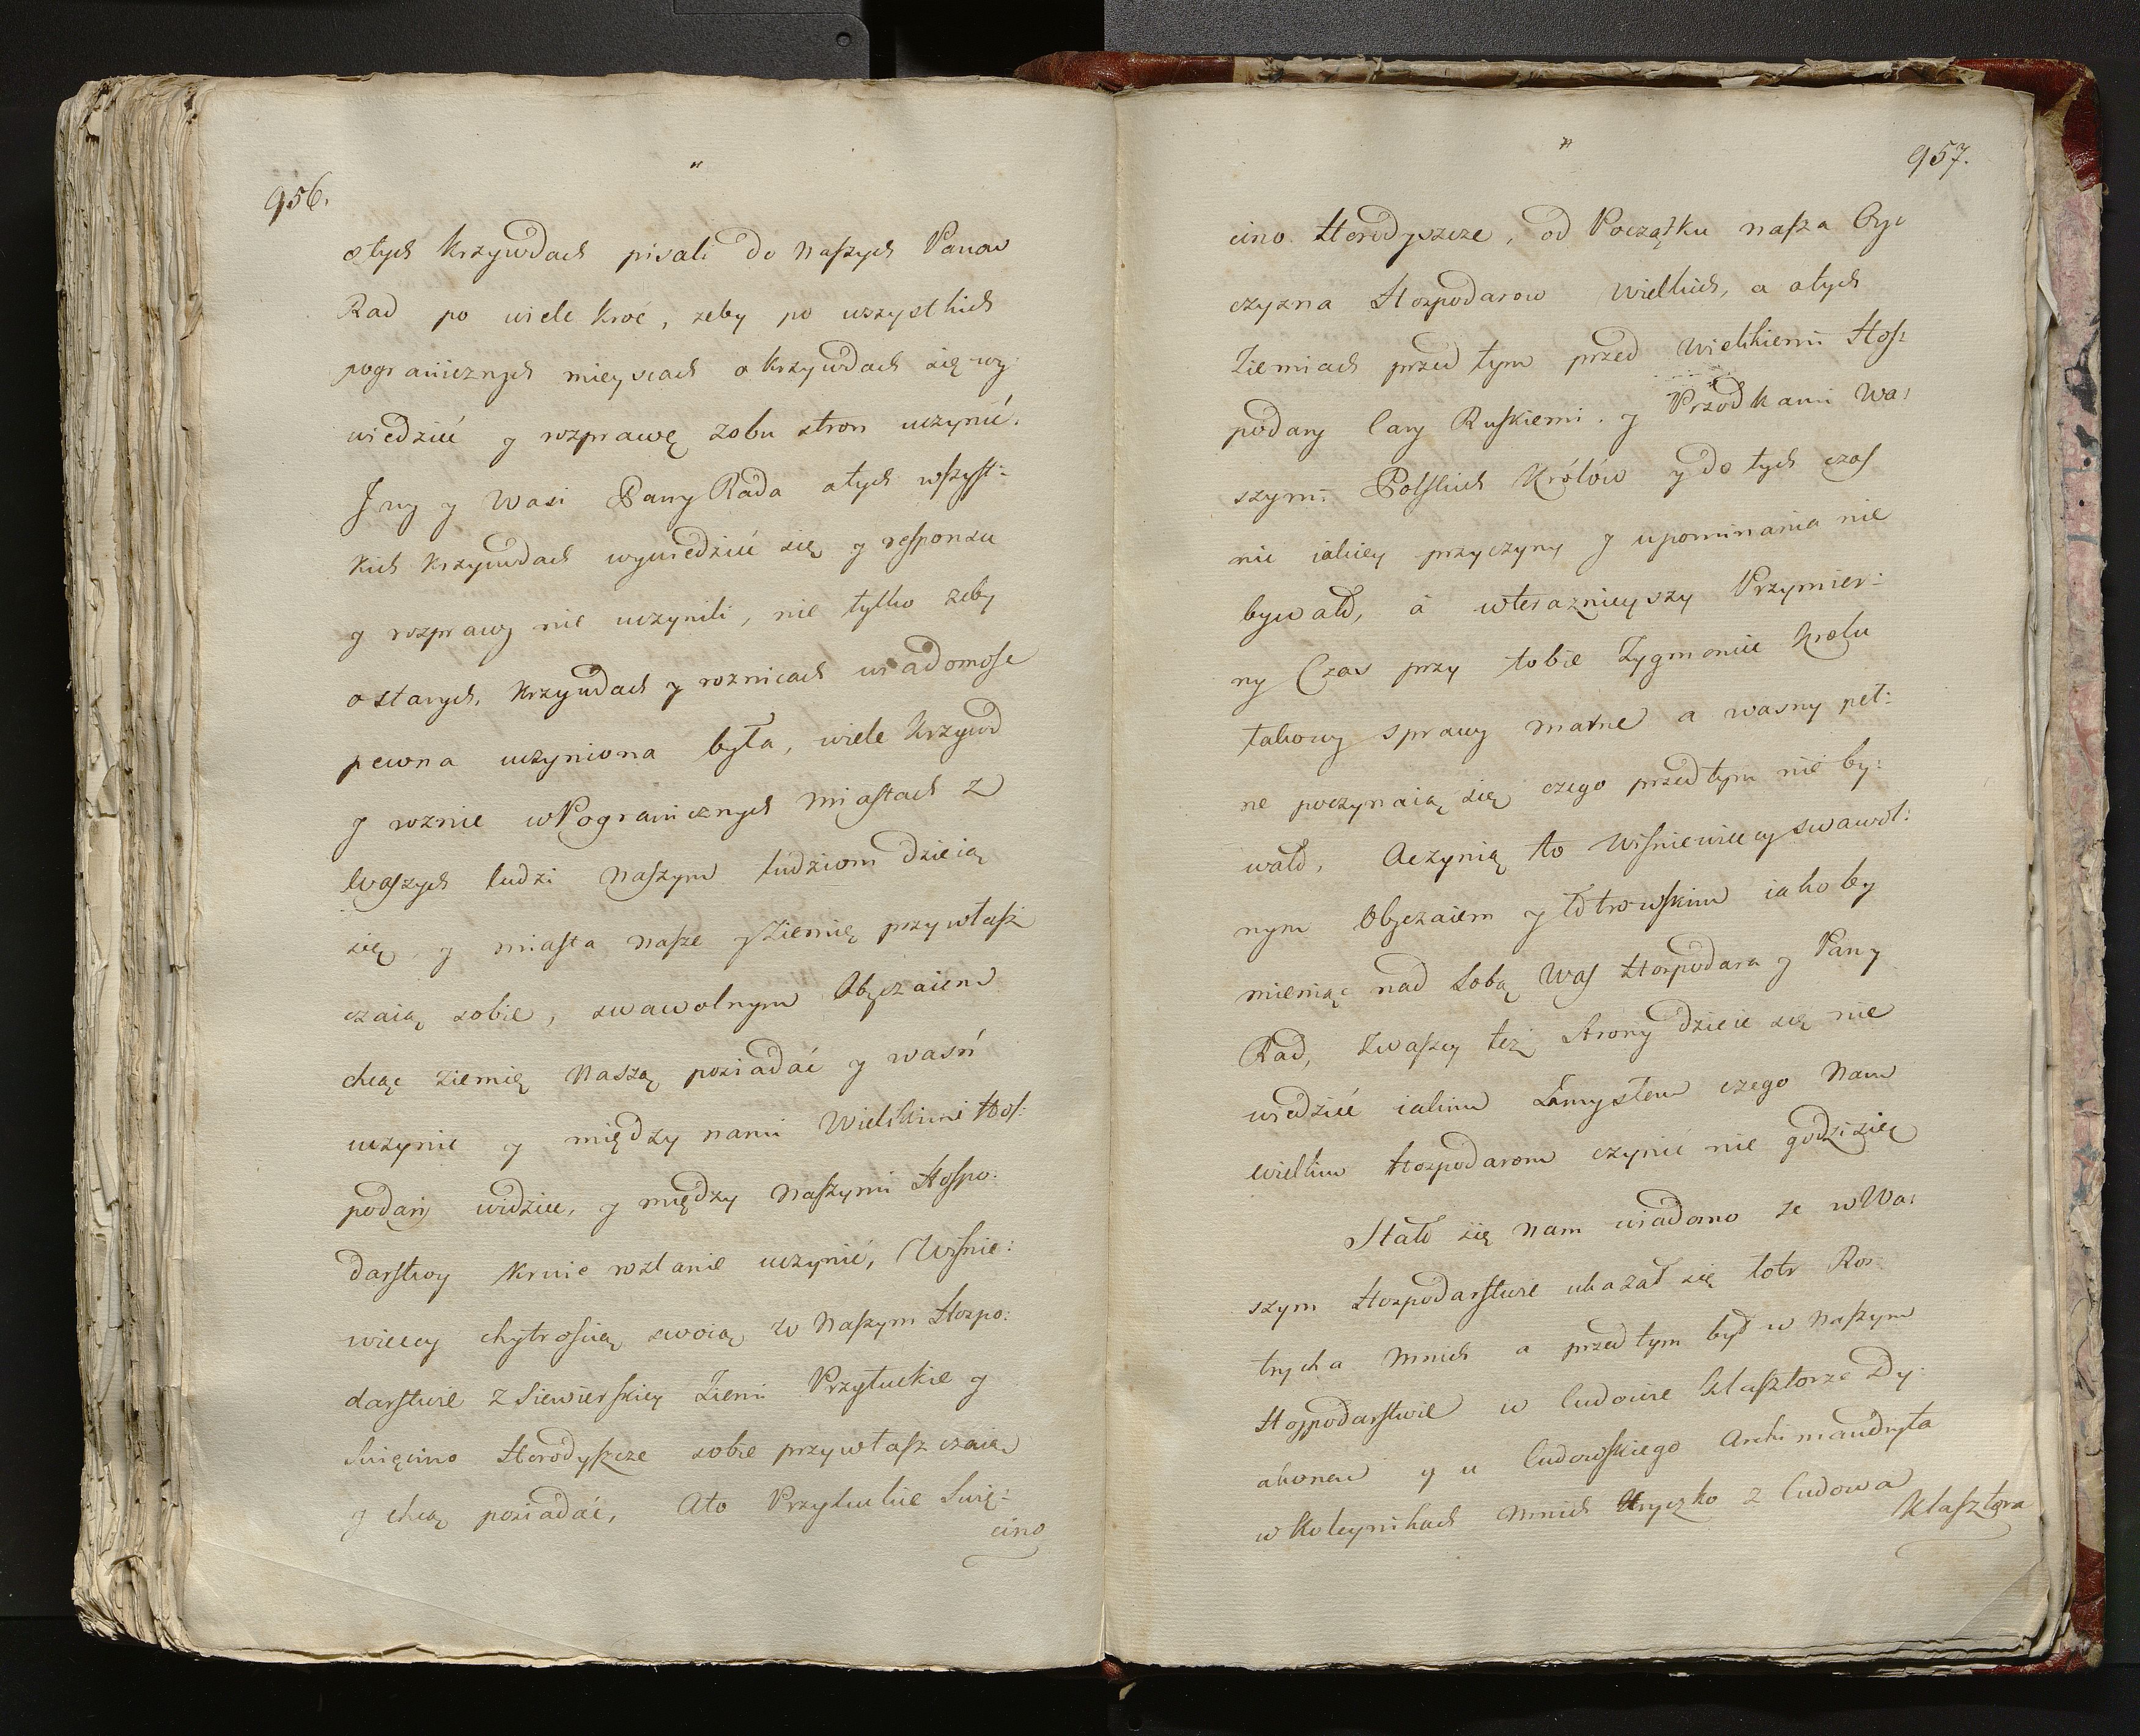 956.
"
o tych krzywdach pisali do Naszych Panow
Rad po wiele kroć, zeby po wszystkich
pogranicznych mieyscach o krzywdach się wy
wiedzieć y rozprawę zobu stron uczynić.
Jny y Wasi Pany Rada o tych wszyst:
kich krzywdach wywiedzieć się y responsu
y rozprawy nie uczynili, nie tylko zeby
o starych, krzywdach y roznicach wiadomosc
pewna uczyniona była, wiele krzywd
y roznie w Pogranicznych Miastach z
Waszych ludzi Naszym ludziom dzieią
się, y miasta nasze y Ziemię przywłasz
czaią sobie, swawolnym Obyczaiem
chcąc Ziemię Naszą posiadać y waśń
uczynic y między nami Wielikimi Hos:
podarÿ widziec, y między Naszymi Hospo:
darstwy krwie rozlanie uczynić, Wisnie:
wieccy chytrością swoią w Naszym Hospo:
darstwie z Siewierskiey Ziemi Przyłuckie y
Snięcino Horodyszcze sobie przywłaszczaią
y chcą posiadać, Ato Przyłuckie Snię:
cino
"
957.
cino Horodyszcze, od Początku nasza Oyc
czyzna Hospodarow Wielkich, a o tych
Ziemiach przed tym przed Wielikiemi Hos:
podary Cary Ruskiemi. y Przodkami Wa:
szymi Polskich Królów y do tych czas
nic iakiey przyczyny y upominania nie
bywało, a w terazniejszy Przymier:
ny Czas przy tobie Zygmoncie Krolu
takowy sprawy marne a wasny peł:
ne poczynaią się czego przed tym nie by:
wało, Aczynią to Wisniewieccy swawol:
nym Obyczaiem y łotrowskim iako by
mieniąc nad sobą Was Hospodara y Pany
Rad, Zwaszey też strony dzieie się nie
wiedzieć iakim Zmysłem czego Nam
wielkim Hospodarom czynić nie godzi się
Stało się nam wiadomo ze w Wa:
szym Hospodarstwie ukazał się łotr Ros:
trycha Mnich a przed tym był w Naszym
Hospodarstwie w Cudowie Klasztorze Dy:
akonem y u Cudowskiego Archimandryta
w Koleynikach Mnich Hryszko z Cudowa
Klasztora